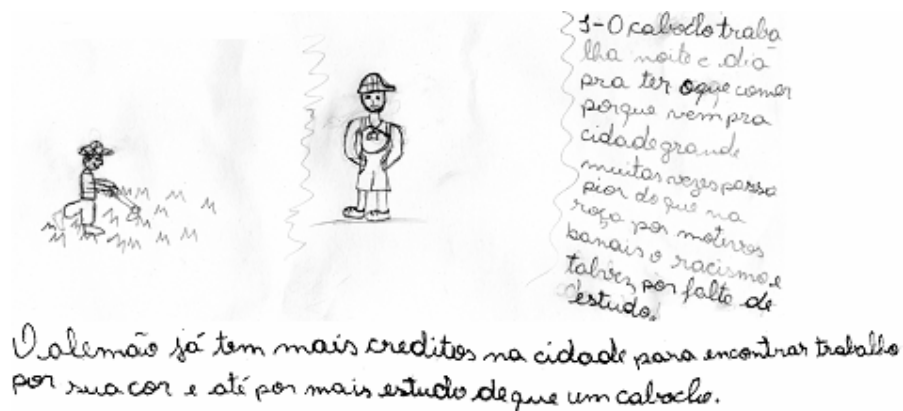 1-O caboclo traba
lha noite e dia
pra ter oque comer
porque vem pra
cidade grande
muitas vezes passa
pior do que na
roça por motivos
banais o racismo e
talvez por falta de
estudo.
O alemão já tem mais creditos na cidade para encontrar trabalho
por sua cor e até por mais estudo deque um caboclo.